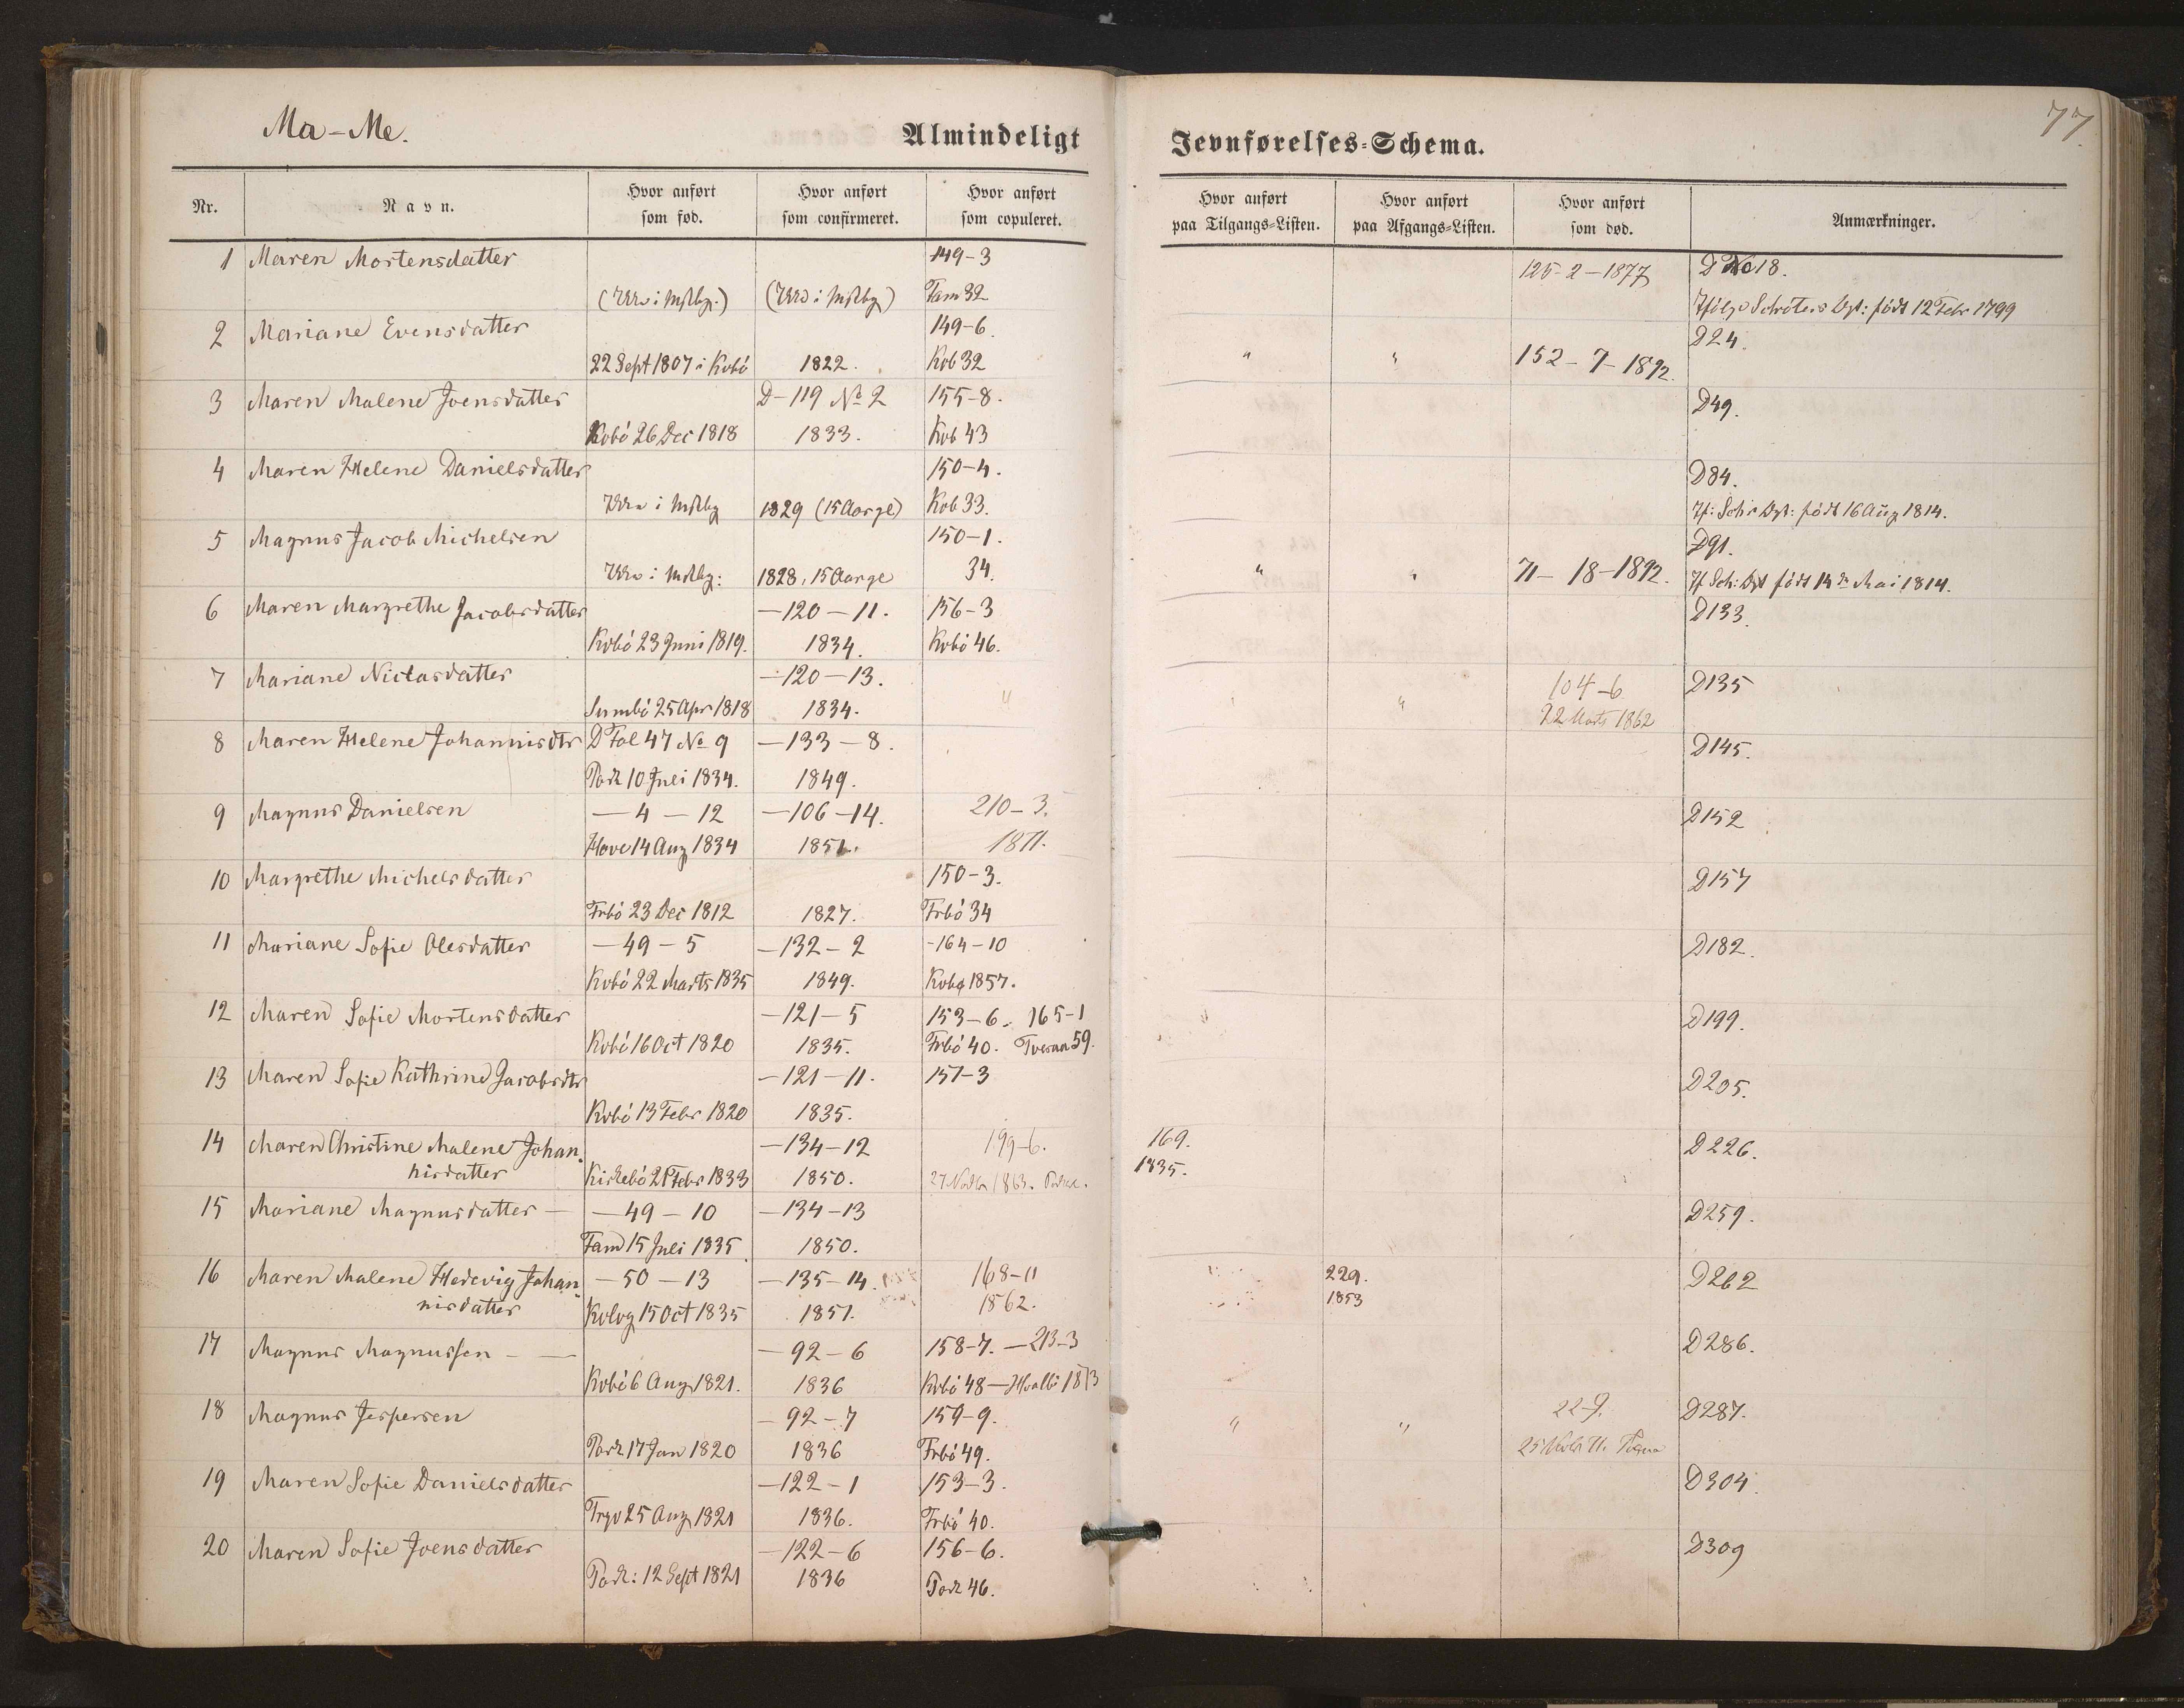 Ma-Me.
Almindeligt
Jevnførelses-Schema.
77.
Nr.
Navn.
Hvor anført
som fød.
Hvor anført
som confirmeret.
Hvor anført
som copuleret.
Hvor anført
paa Tilgangs-Listen.
Hvor anført
paa Afgangs-Listen.
Hvor anført
som død.
Anmærkninger.
1 Maren Mortensdatter 149-3 125-2-1877 D No 18.
Fam 32 Schröters født 12 Febr 1799
2 Mariane Evensdatter 149-6. D24.
22 Sept 1807 i Kvbö 1822. Kvb 32 " " 152-7-1892.
3 Maren Malene Joensdatter D-119 No 2 155-8. D49.
Kvbö 26 Dec 1818 1833. Kvb 43
4 Maren Helene Danielsdatter 150-4. D84.
1829 (15 Aar gl) Kvb 33. født 16 Aug 1814.
5 Magnus Jacob Michelsen 150-1. D91.
1828, 15 Aar gl 34. " " 71-18-1892. født 14de Mai 1814.
6 Maren Margrethe Jacobsdatter -120-11. 156-3 D133.
Kvbö 23 Juni 1819. 1834. Kvbö 46.
7 Mariane Niclasdatter -120-13. 104-6 D135
Sumbö 25 Apr 1818 1834. " " " 22 Marts 1862
8 Maren Helene Johannisdtr D Fol 47 No 9 -133-8. D145.
Pork 10 Juli 1834. 1849.
9 Magnus Danielsen -4-12 -106-14. 210-3. D152
Hove 14 Aug 1834 1851. 1871.
10 Margrethe Michelsdatter 150-3. D157
Frbö 23 Dec 1812 1827. Frbö 34
11 Mariane Sofie Olesdatter -49-5 -132-2 -164-10 D182.
Kvbö 22 Marts 1835 1849. Kvbö 1857.
12 Maren Sofie Mortensdatter -121-5 153-6. 165-1 D199.
Kvbö 16 Oct 1820 1835. Frbö 40. Tveraa 59.
13 Maren Sofie Kathrine Jacobsdtr -121-11. 157-3 D205.
Kvbö 13 Febr 1820 1835.
14 Maren Christine Malene Johan- -134-12 199-6. 169. D226.
nisdatter Kirkebö 21 Febr 1833 1850. 27 Novbr 1863. 1835.
15 Mariane Magnusdatter - -49-10 -134-13 D259.
Fam 15 Juli 1835 1850.
16 Maren Malene Hedevig Johan- -50-13 -135-14. 168-11 229. D262
nisdatter Kvlvg 15 Oct 1835 1851. 1862. 1853
17 Magnus Magnussen - - -92-6 158-7. -213-3 D286.
Kvbö 6 Aug 1821. 1836 Kvbö 48-Hvalbö 1873
18 Magnus Jespersen -92-7 159-9. 22-9. D287.
Pork 17 Jan 1820 1836 Frbö 49. " " 25 Novbr 71.
19 Maren Sofie Danielsdatter -122-1 153-3. D304.
Trgv 25 Aug 1821 1836. Frbö 40.
20 Maren Sofie Joensdatter -122-6 156-6. D309
Pork: 12 Sept 1821 1836 Pork 46.